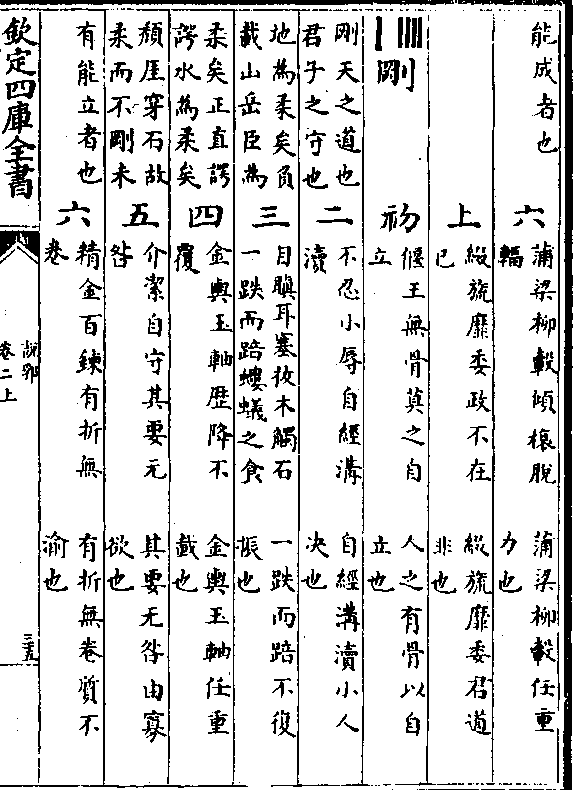 能成者也
六
蒲梁柳轂傾榱脫
輻
蒲梁柳轂任重
力也
上
綴旒靡委政不在
已
綴旒靡委君道
非也
剛
初
偃王無骨莫之自
立
人之有骨以自
立也
剛天之道也
君子之守也
二
不忍小辱自經溝
瀆
自經溝瀆小人
决也
地為柔矣負
載山岳臣為
三
目瞋耳塞拔木觸石
一跌而踣螻蟻之食
一跌而踣不復
振也
柔矣正直諤
諤水為柔矣
四
金輿玉軸歴降不
覆
金輿玉軸任重
載也
頽厓穿石故
柔而不剛未
五
介潔自守其要无
咎
其要无咎由寡
欲也
有能立者也
六
精金百鍊有折無
卷
有折無卷質不
渝也
欽定四庫全書
說郛
卷二上
三五